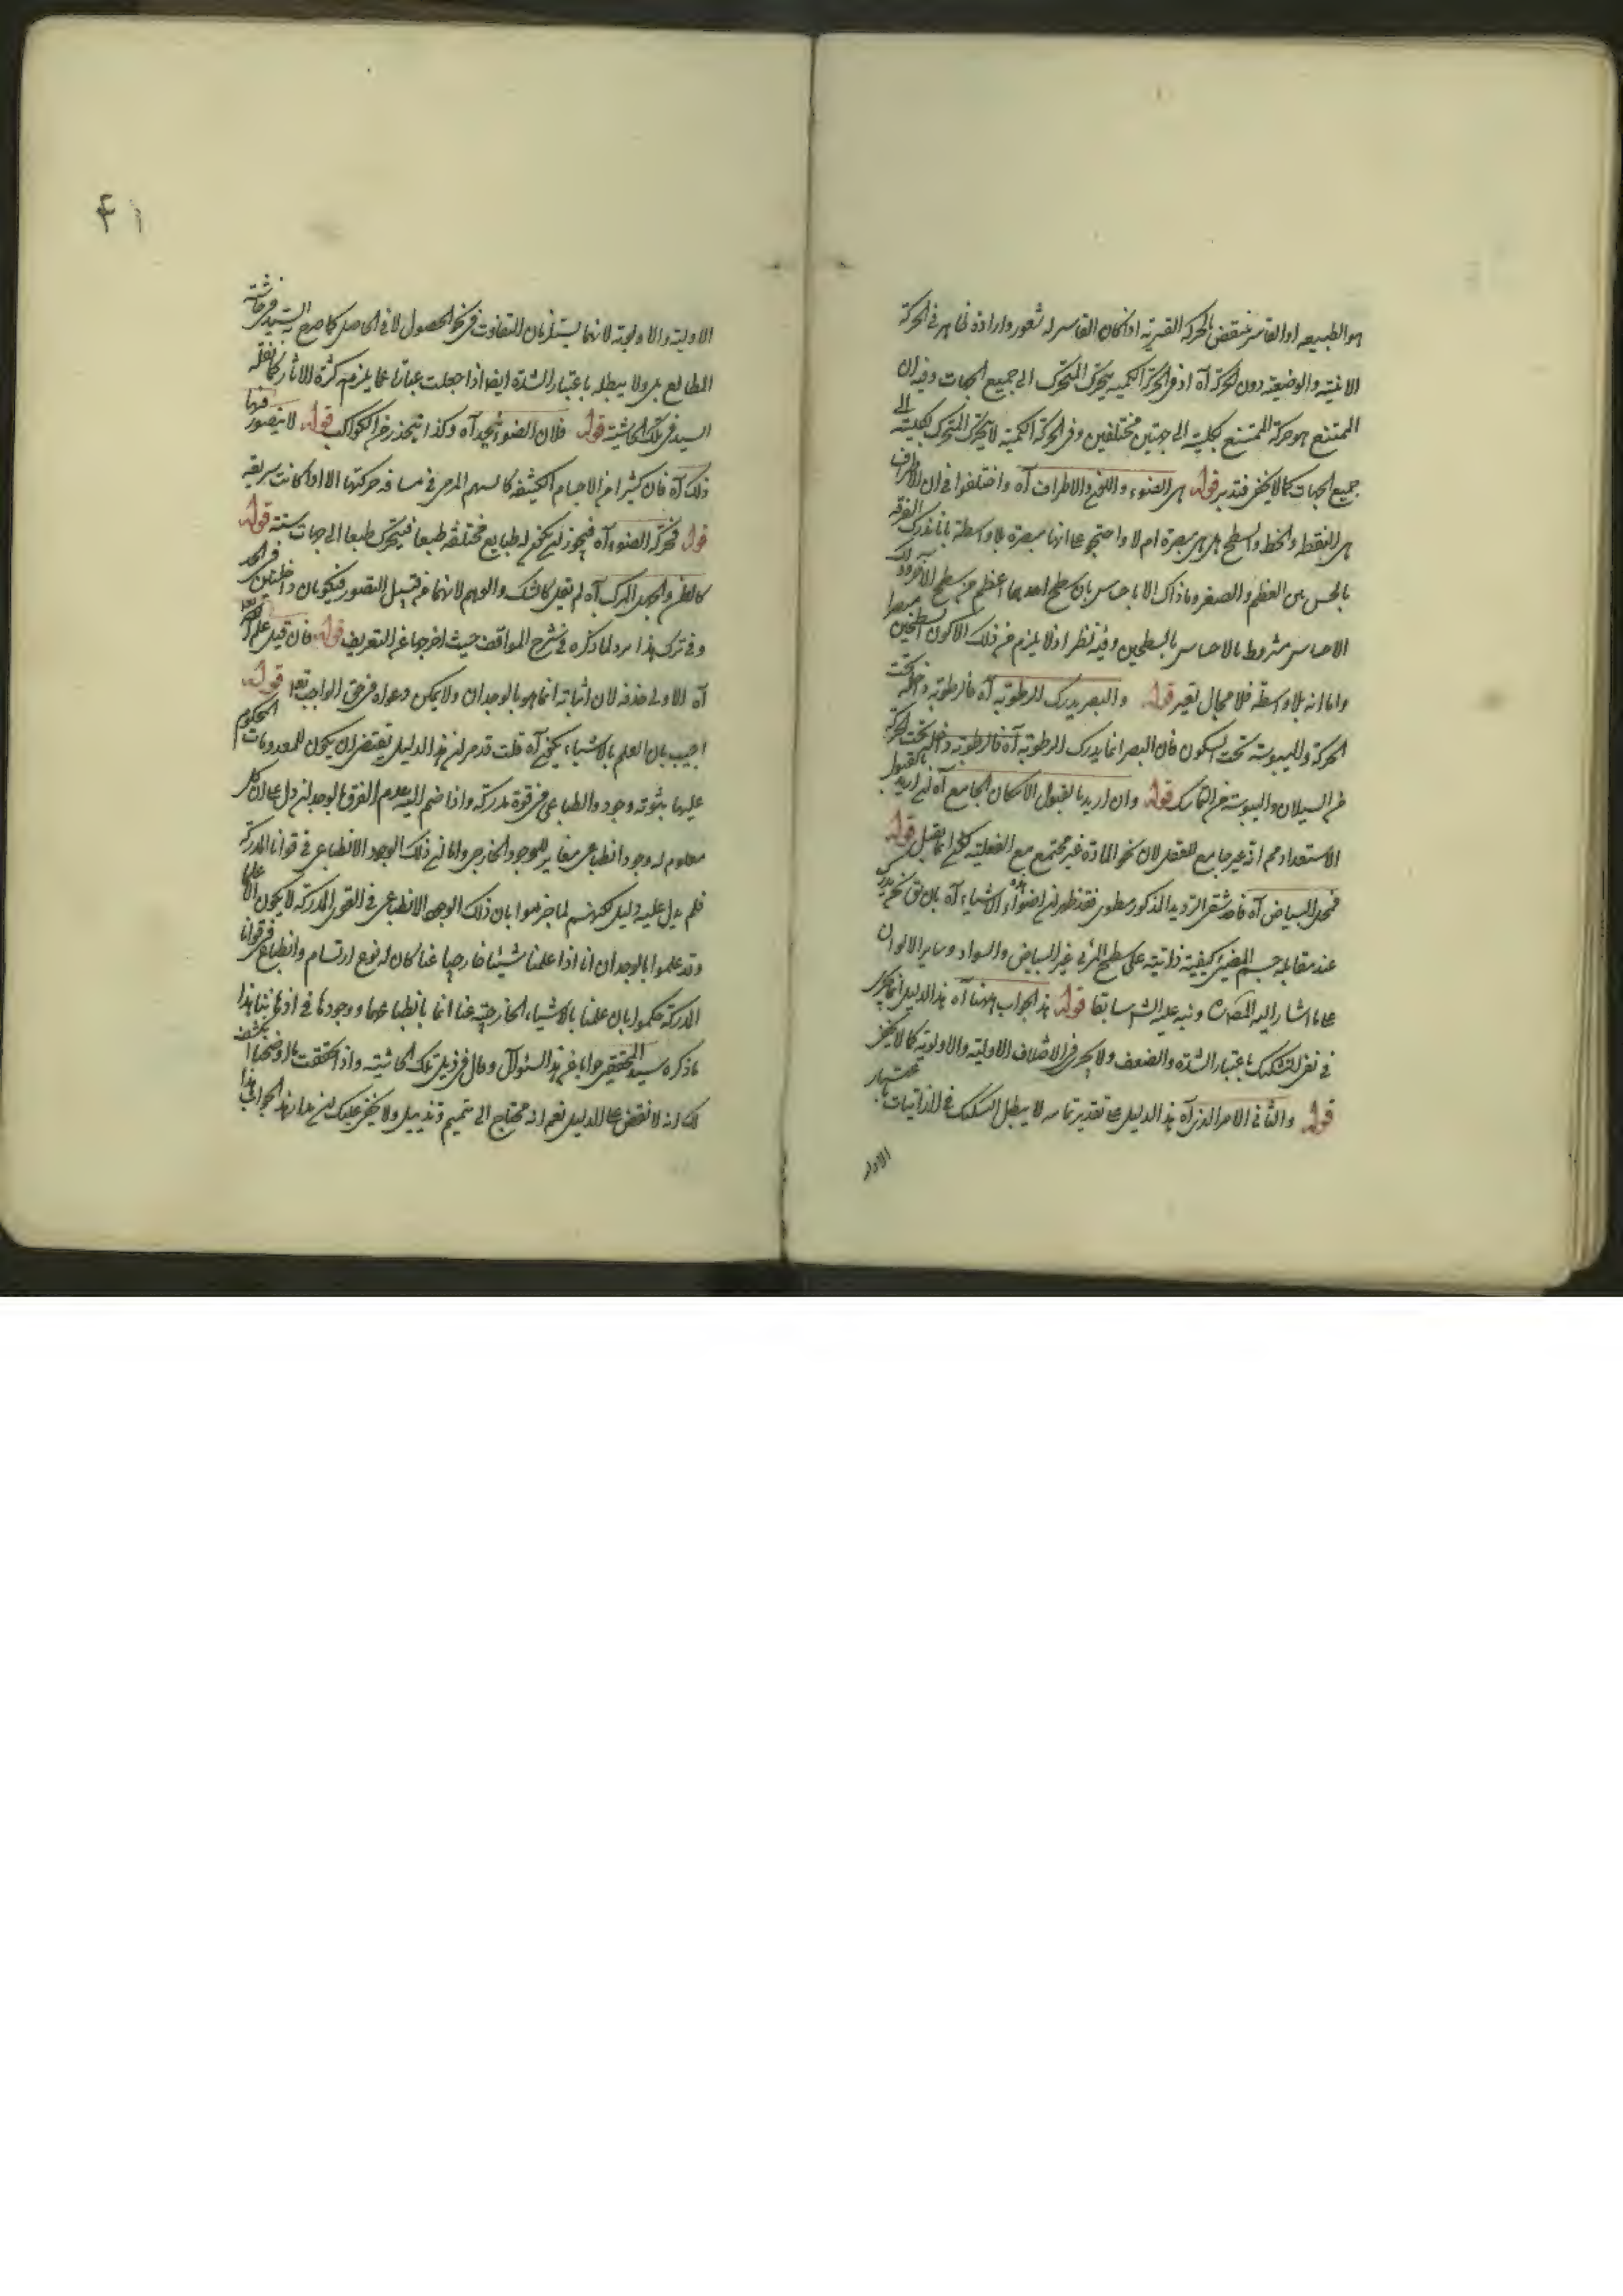 هو الطبيعه او القاسر فينتقض بالحركه القسريه اذا كان القاسر له شعور وارادة ظاهر فى الحركة
الاينيه والوضعيه دون الحركه آه اذ فى الحركة الكميه يتحرك المتحرك الى جميع الجهات وفيه ان
الممتنع هو حركة الممتنع بكليته الى جهتين مختلفين وفى الحركة الكمية لا يتحرك المتحرك بكليته الى
جميع الجهات كما لا يخفى فتدبر قوله هى الضوء واللون والاطراف آه واختلفوا فى ان الاطراف
هى النقطه والخط والسطح هل هى مبصرة ام لا واحتج على انها مبصرة بلا واسطة بانا ندرك التفرقه
بالحس بين العظم والصغر وما ذاك الا باحساس بان سطح احدهما اعظم من سطح الآخر
الاحساس مشروط بالاحساس بالسطحين وفيه نظر اذ لا يلزم من ذلك الا كون السطحين مبصرا
واما انه بلا واسطة فلا مجال قوله والبصر يدرك الرطوبه آه فالرطوبه داخله تحت
الحركة واليبوسته تحت السكون فان البصر انما يدرك الرطوبه آه فالرطوبه داخله تحت الحركة
من السيلان واليبوسته من التماسك قوله وان اريد بالقبول الامكان الجامع آه اريد بالقبول
الاستعداد انه غير جامع للفعل لان نحو المادة غير مجتمع مع الفعليه قوله
فمحل البياض آه فاحد شقى الترديد المذكور مطوى فقد ظهر ان اضواء الاشياء آه بان
عند مقابله جسم المضئ كيفية ذاتيته على سطح المرئى غير البياض والسواد وساير الالوان
على ما اشار اليه المص ونبه عليه الشم سابقا قوله هذ الجواب ههنا آه هذ الدليل انما يجرى
فى نفى التشكيك باعتبار الشدة والضعف ولا يجرى فى الاختلاف الاوليته والاولوية كما لا يخفى
قوله والثانى الامر الذى آه هذ الدليل على تقدير تمامه لا يبطل التشكيك فى الذاتيات باعتبار
الاول
۴۱
الاوليته والاولويته لانهما يستلزمان التفاوت فى نحو الحصول لا فى الحاصل كما صرح به السيد فى حاشيته
المطالع بل ولا يبطله باعتبار الشدة ايضا اذا جعلت عبارة عما يلزم كثرة الاثار كما نقله
السيد فى تلك الحاشيته قوله فلان الضوء ينحدر آه وكذا ينحدر من الكواكب قوله لا يتصور فيها
ذلك آه فان كثيرا من الاجسام الكثيفه كالسهم المرمى فى مسافه حركتها الا اذا كانت سريعه
قوله فحركه الضوء آه فيجوز ان يكون له طبايع مختلفه طبعا فيتحرك طبعا الى جهات ستته قوله
كالظن والجهل المركب آه لم يقل كالشك والوهم لانهما من قبيل التصور فيكونان داخلين
وفى ترك هذا رد لما ذكره فى شرح المواقف حيث اخرجها عن التعريف قوله فان قيل علم الله
آه الاولى حذفه لان اثباته انما هو بالوجدان ولا يمكن دعواه فى حق الواجب تعا قوله
اجيب بان العلم بالاشياء يكون آه قلت قد مر ان هذ الدليل يقتضى ان يكون للمعدومات المحكوم
عليها بثبوته وجود انطباعى فى قوة مدركه واذا ضم اليه عدم الفرق بالوجدان دل على ان كل
معلوم له وجود انطباعى مغاير للوجود الخارجى واما ان ذلك الوجود الانطباعى فى قوانا المدركة
فلم يدل عليه دليل لكنهم لما جزموا بان ذلك الوجود الانطباعى فى القوى المدركه لا يكون الا
وقد علموا بالوجدان انا اذا علمنا شيئا خارجيا عنا كان له نوع ارتسام وانطباع فى قوانا
المدركة حكموا بان علمنا بالاشياء الخارجيته عنا انما بانطباعها ووجودها فى اذهاننا هذا
ما ذكره سيد المحققين جوابا عن هذ السئوال وقال فى ذيل تلك الحاشيته واذا تحققت ما اوضحناه
لك انه لا نقض على الدليل نعم انه محتاج الى تتميم وتذييل ولا يخفى عليك ان مدار هذ الجواب